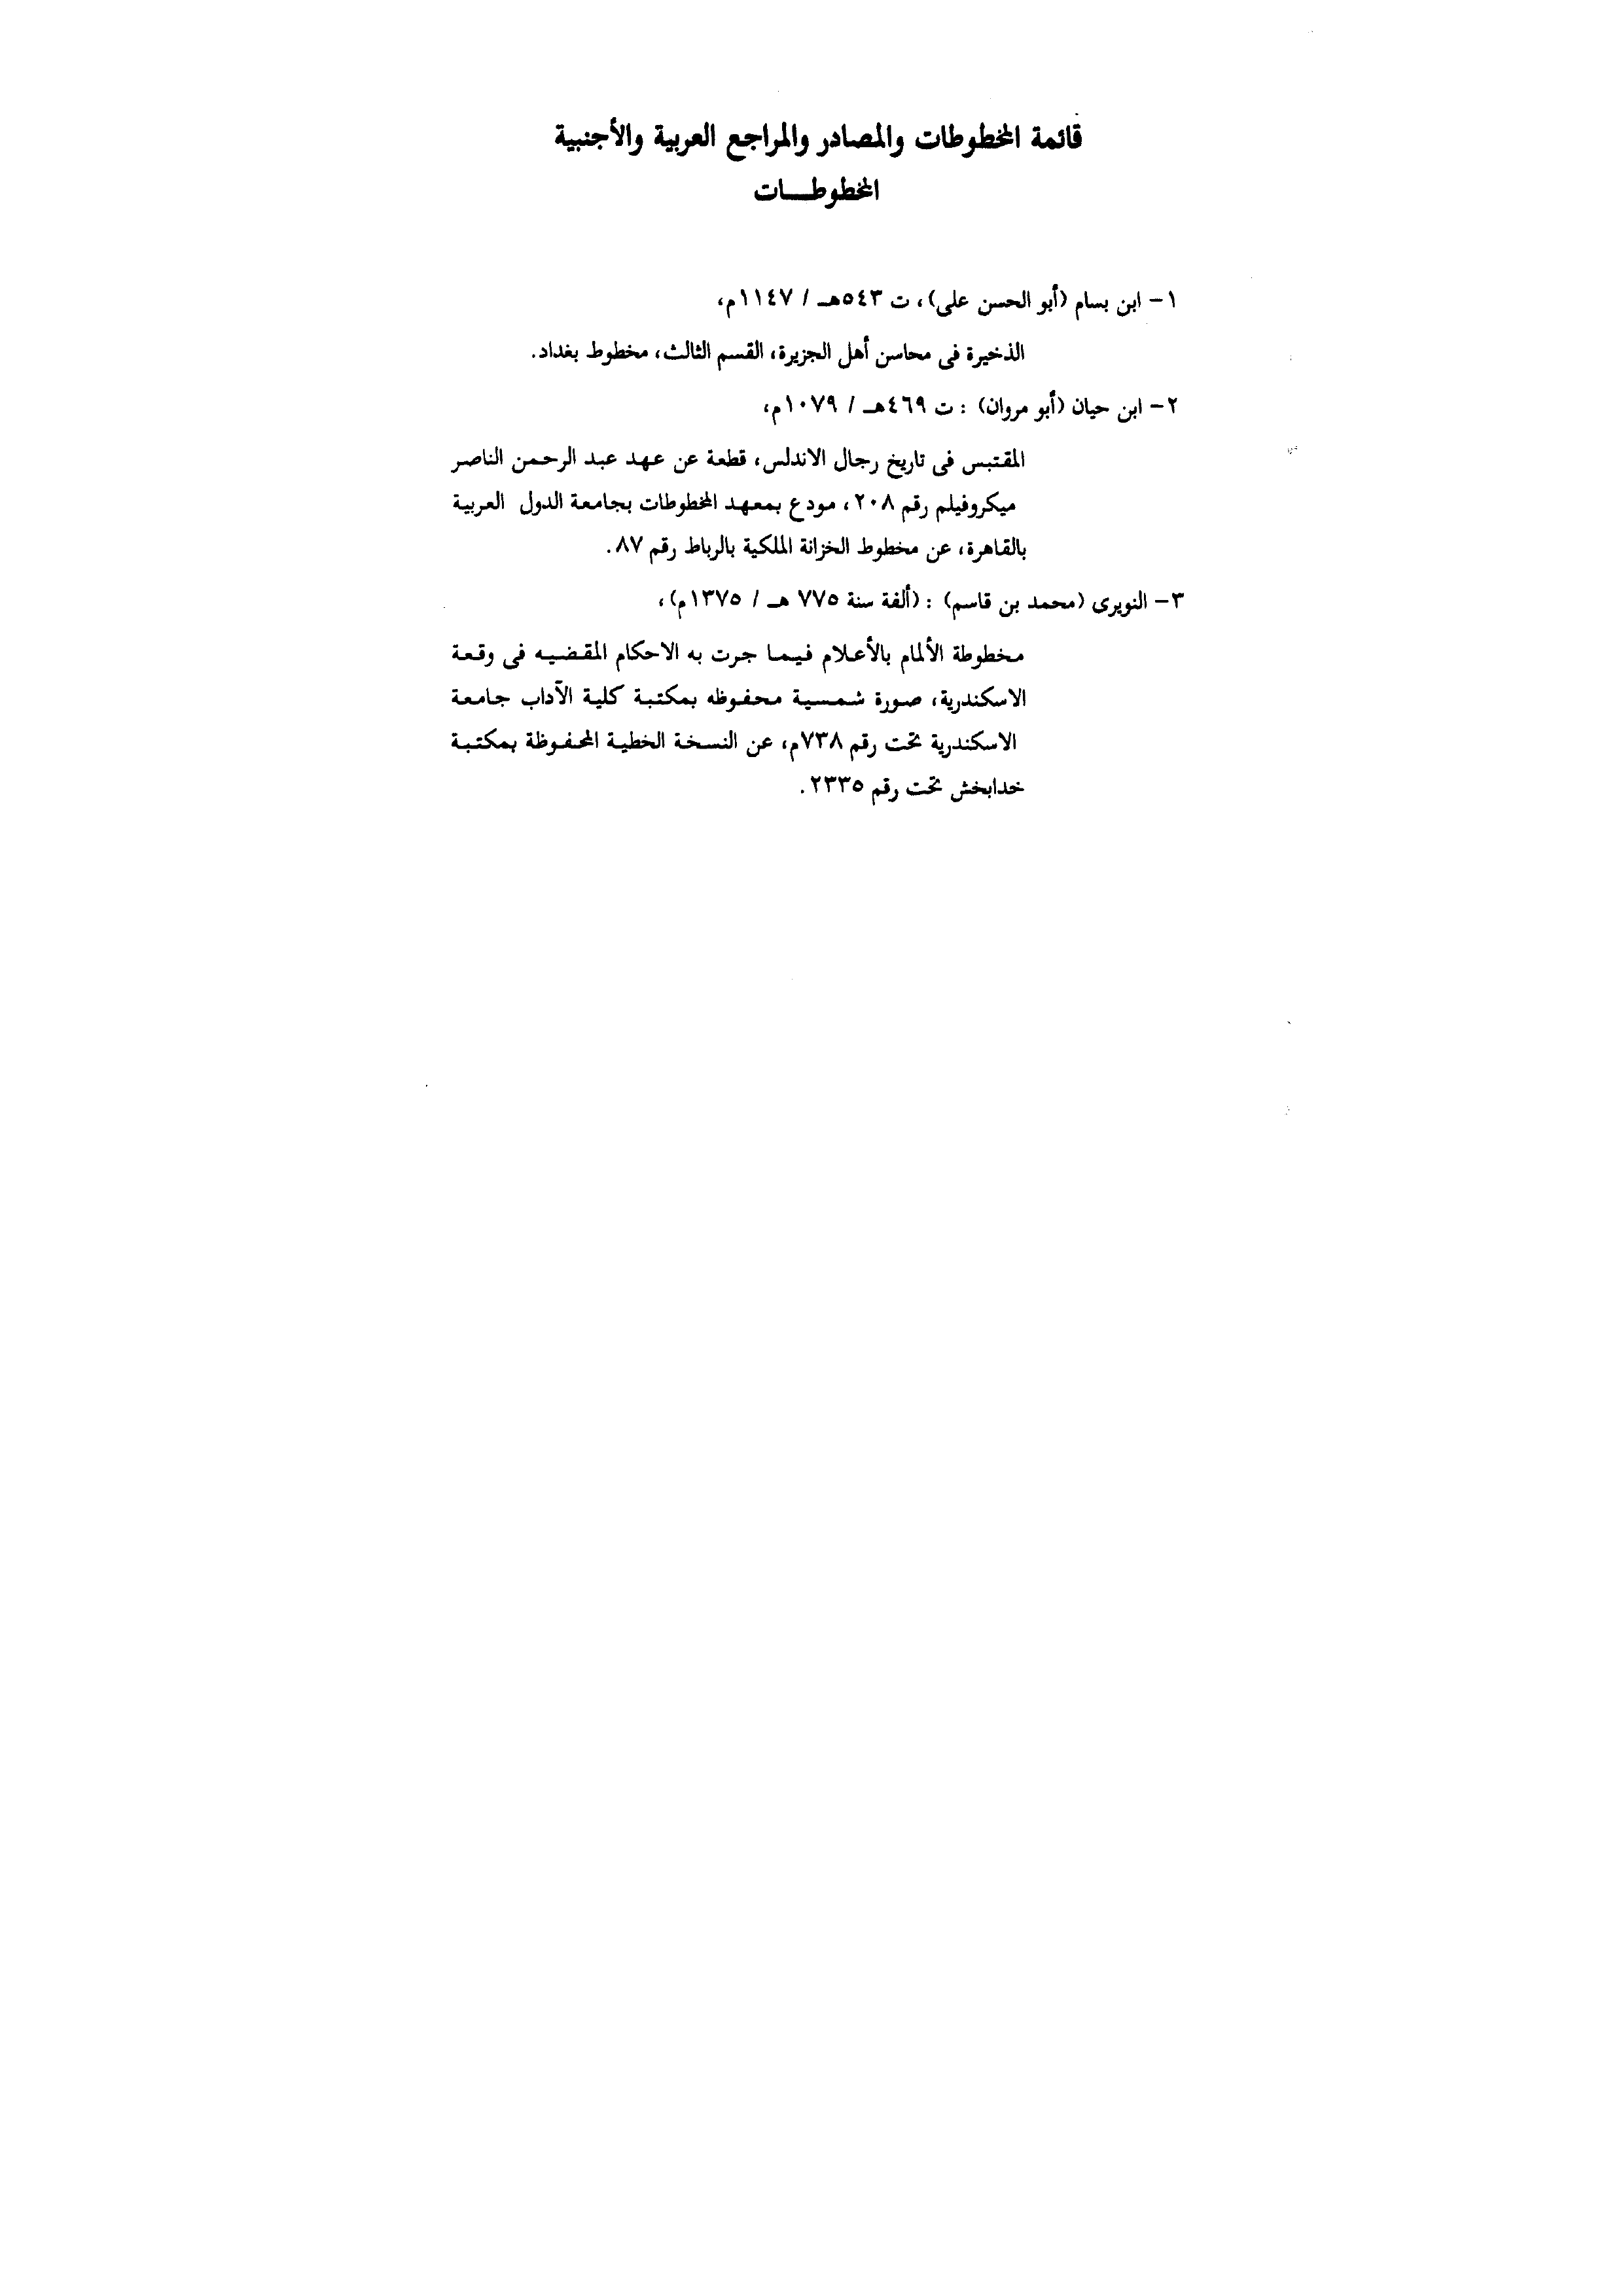 قائمة المخطوطات والمصادر والمراجع العربية والأجنبية
المخطوطــات
١- ابن بسام (أبو الحسن على)، ت ٥٤٣هـ / ١١٤٧م،
الذخيرة فى محاسن أهل الجزيرة، القسم الثالث، مخطوط بغداد.
٢- ابن حيان (أبو مروان) : ت ٤٦٩هـ / ١٠٧٩م،
المقتبس فى تاريخ رجال الاندلس، قطعة عن عهد عبد الرحمن الناصر
ميكروفيلم رقم ٢٠٨، مودع بمعهد المخطوطات بجامعة الدول العربية
بالقاهرة، عن مخطوط الخزانة الملكية بالرباط رقم ٨٧.
٣- النويرى (محمد بن قاسم) : (ألفة سنة ٧٧٥ هـ / ١٣٧٥م)،
مخطوطة الألمام بالأعلام فيما جرت به الاحكام المقضيه فى وقعة
الاسكندرية، صورة شمسية محفوظه بمكتبة كلية الآداب جامعة
الاسكندرية تحت رقم ٧٣٨م، عن النسخة الخطية المحفوظة بمكتبة
خدابخش تحت رقم ٢٣٣٥.